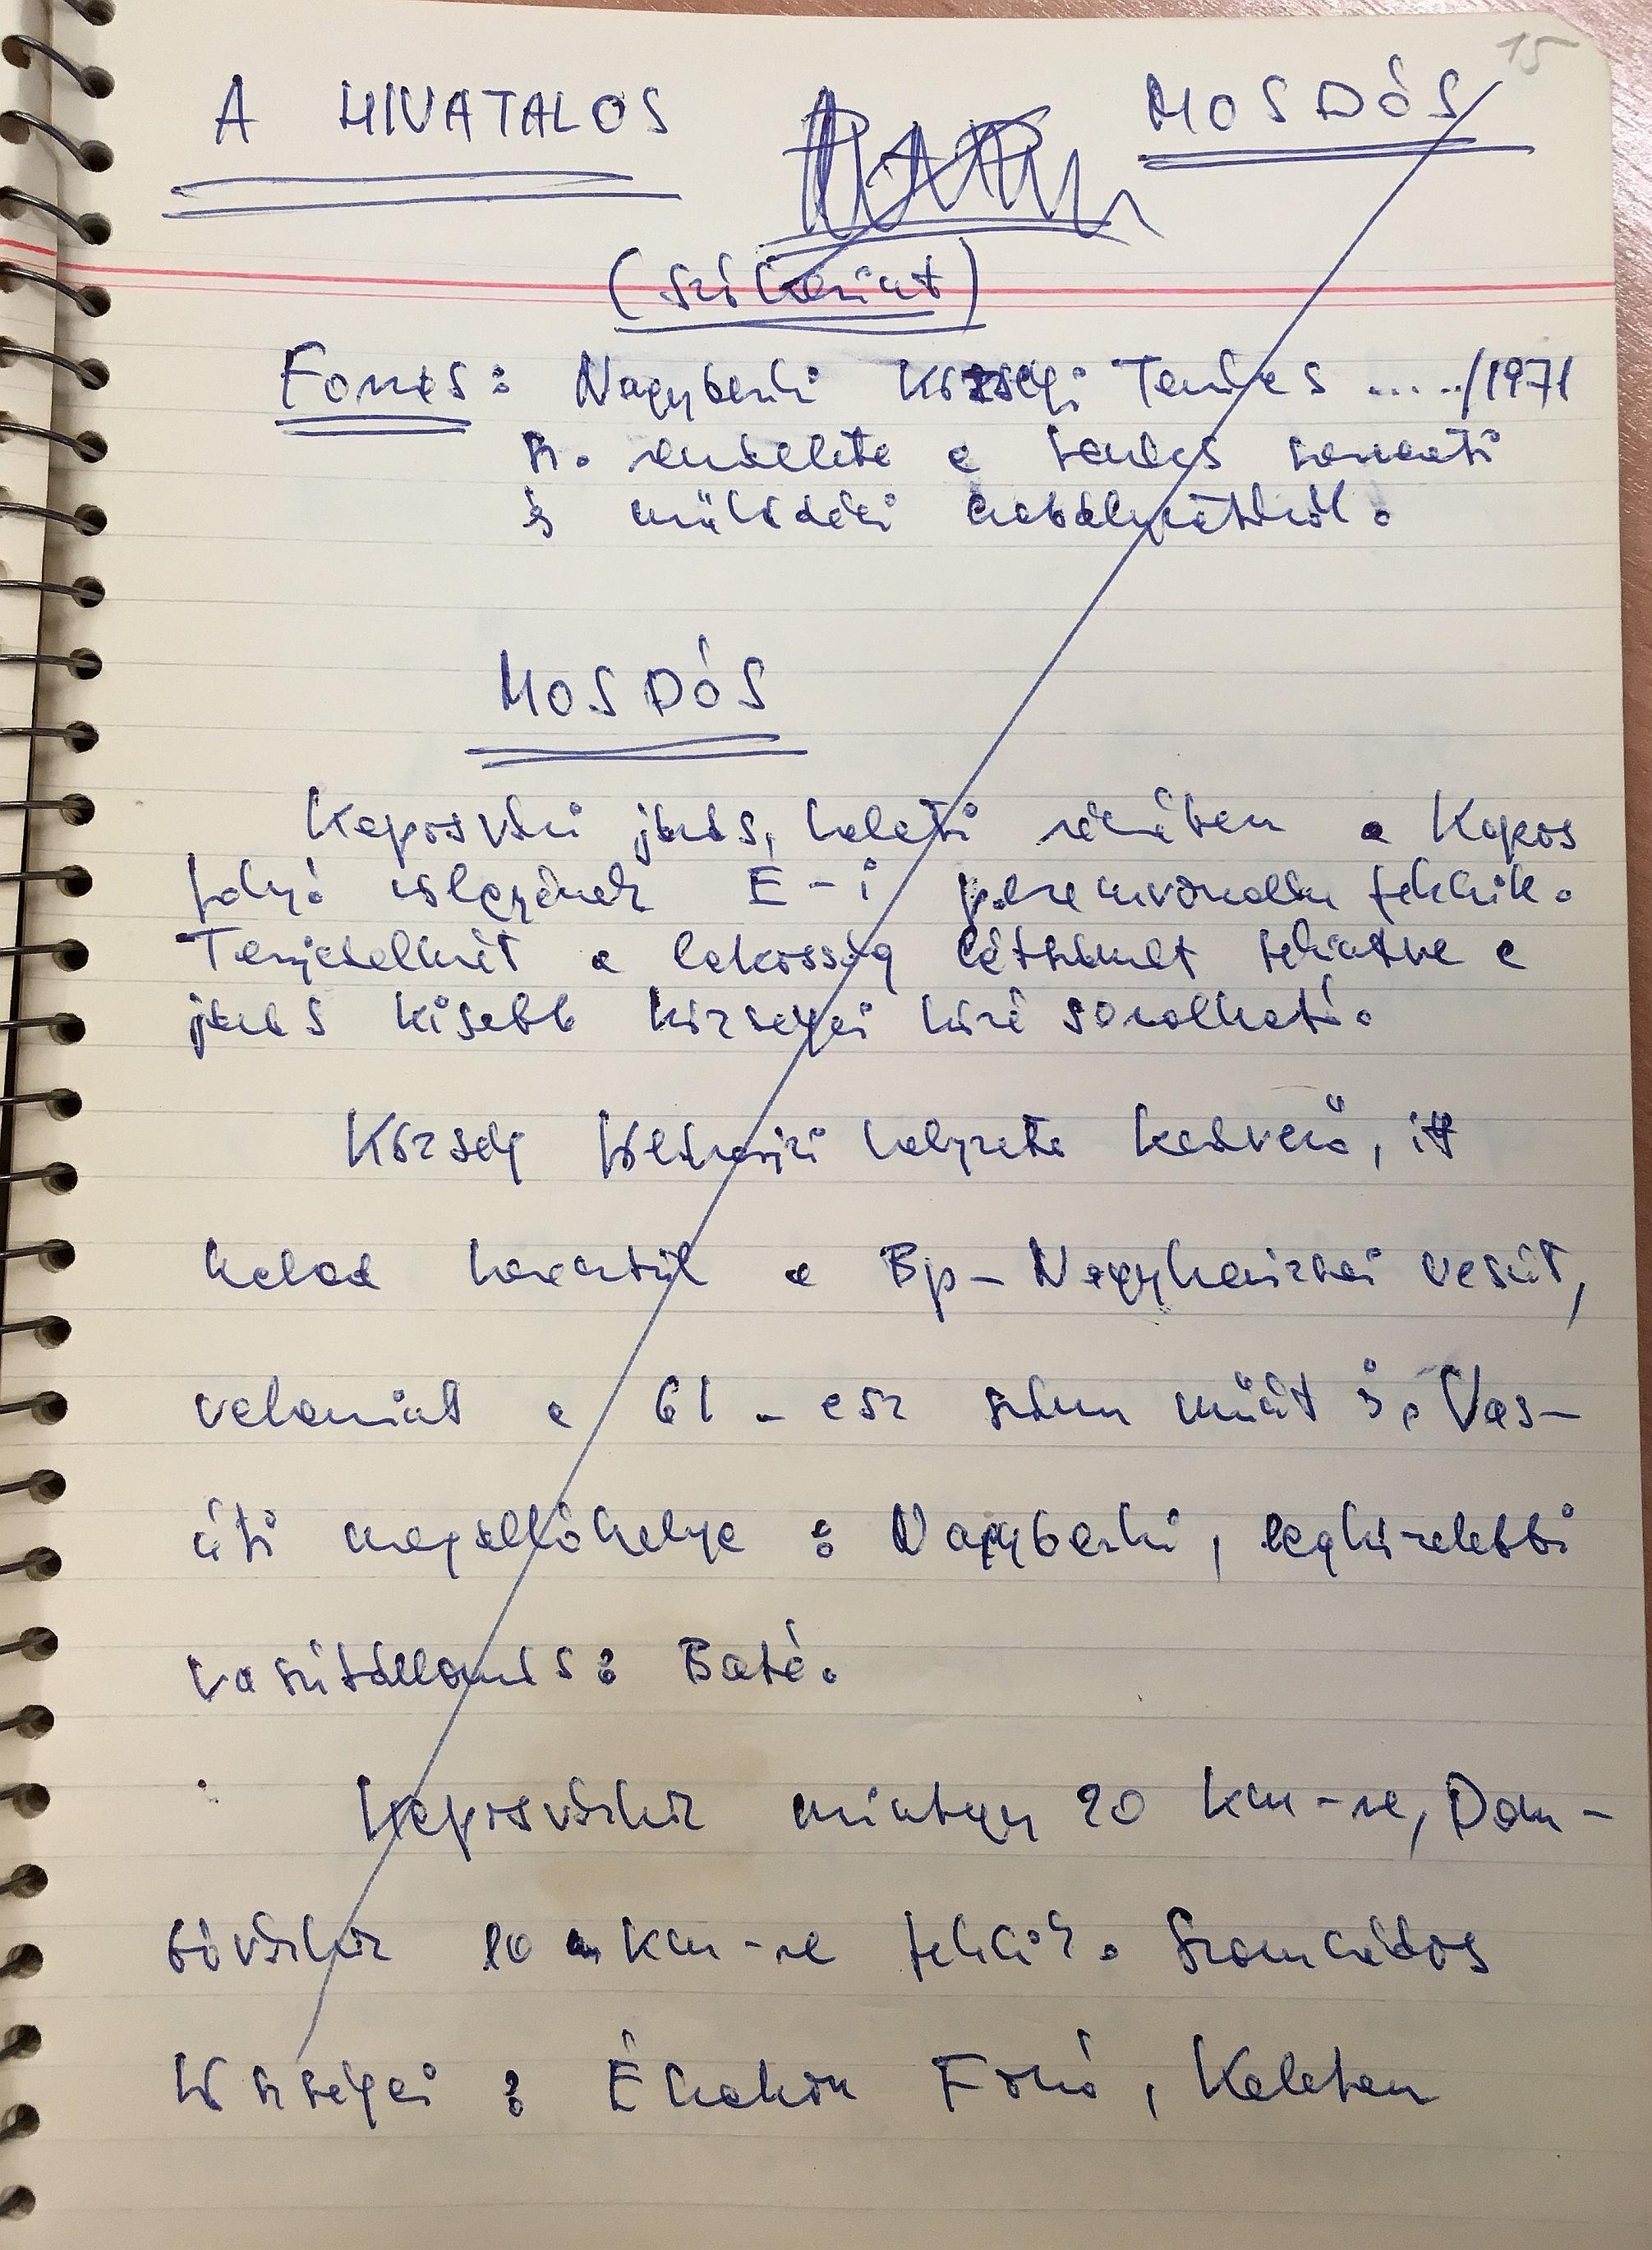 15
A HIVATALOS MOSDÓS
(szó szerint)
Forrás: Nagyberki Községi Tanács ...../1971
sz. rendelete a tanács szervezeti
és működési szabályzatáról.
MOSDÓS
Kaposvári járás, keleti részében a Kapos
folyó völgyének É-i peremvonalán fekszik.
Terjedelmét a lakosság létszámát tekintve a
járás kisebb községei közé sorolható.
Község földrajzi helyzete kedvező, itt
halad keresztül a Bp-Nagykanizsai vasút,
valamint a 61-esz számú műút is. Vas-
úti megállóhelye: Nagyberki, legközelebbi
vasútállomás: Baté.
Kaposvárhoz mintegy 20 km-re, Dom-
bóvárhoz 10 km-re fekszik. Szomszédos
községei: Északon Fonó, Keleten